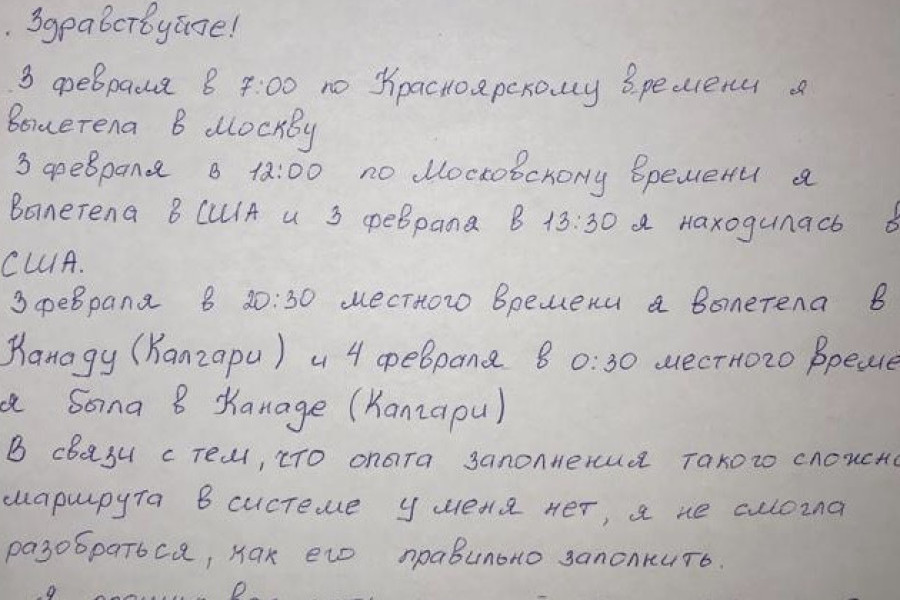 . Здравствуйте!
3 февраля в 7:00 по Красноярскому времени я
вылетела в Москву
3 февраля в 12:00 по Московскому времени я
вылетела в США и 3 февраля в 13:30 я находилась в
США.
3 февраля в 20:30 местного времени я вылетела в
Канаду (Калгари) и 4 февраля в 0:30 местного време
я была в Канаде (Калгари)
В связи с тем, что опыта заполнения такого сложно
маршрута в системе у меня нет, я не смогла
разобраться, как его правильно заполнить.
Я